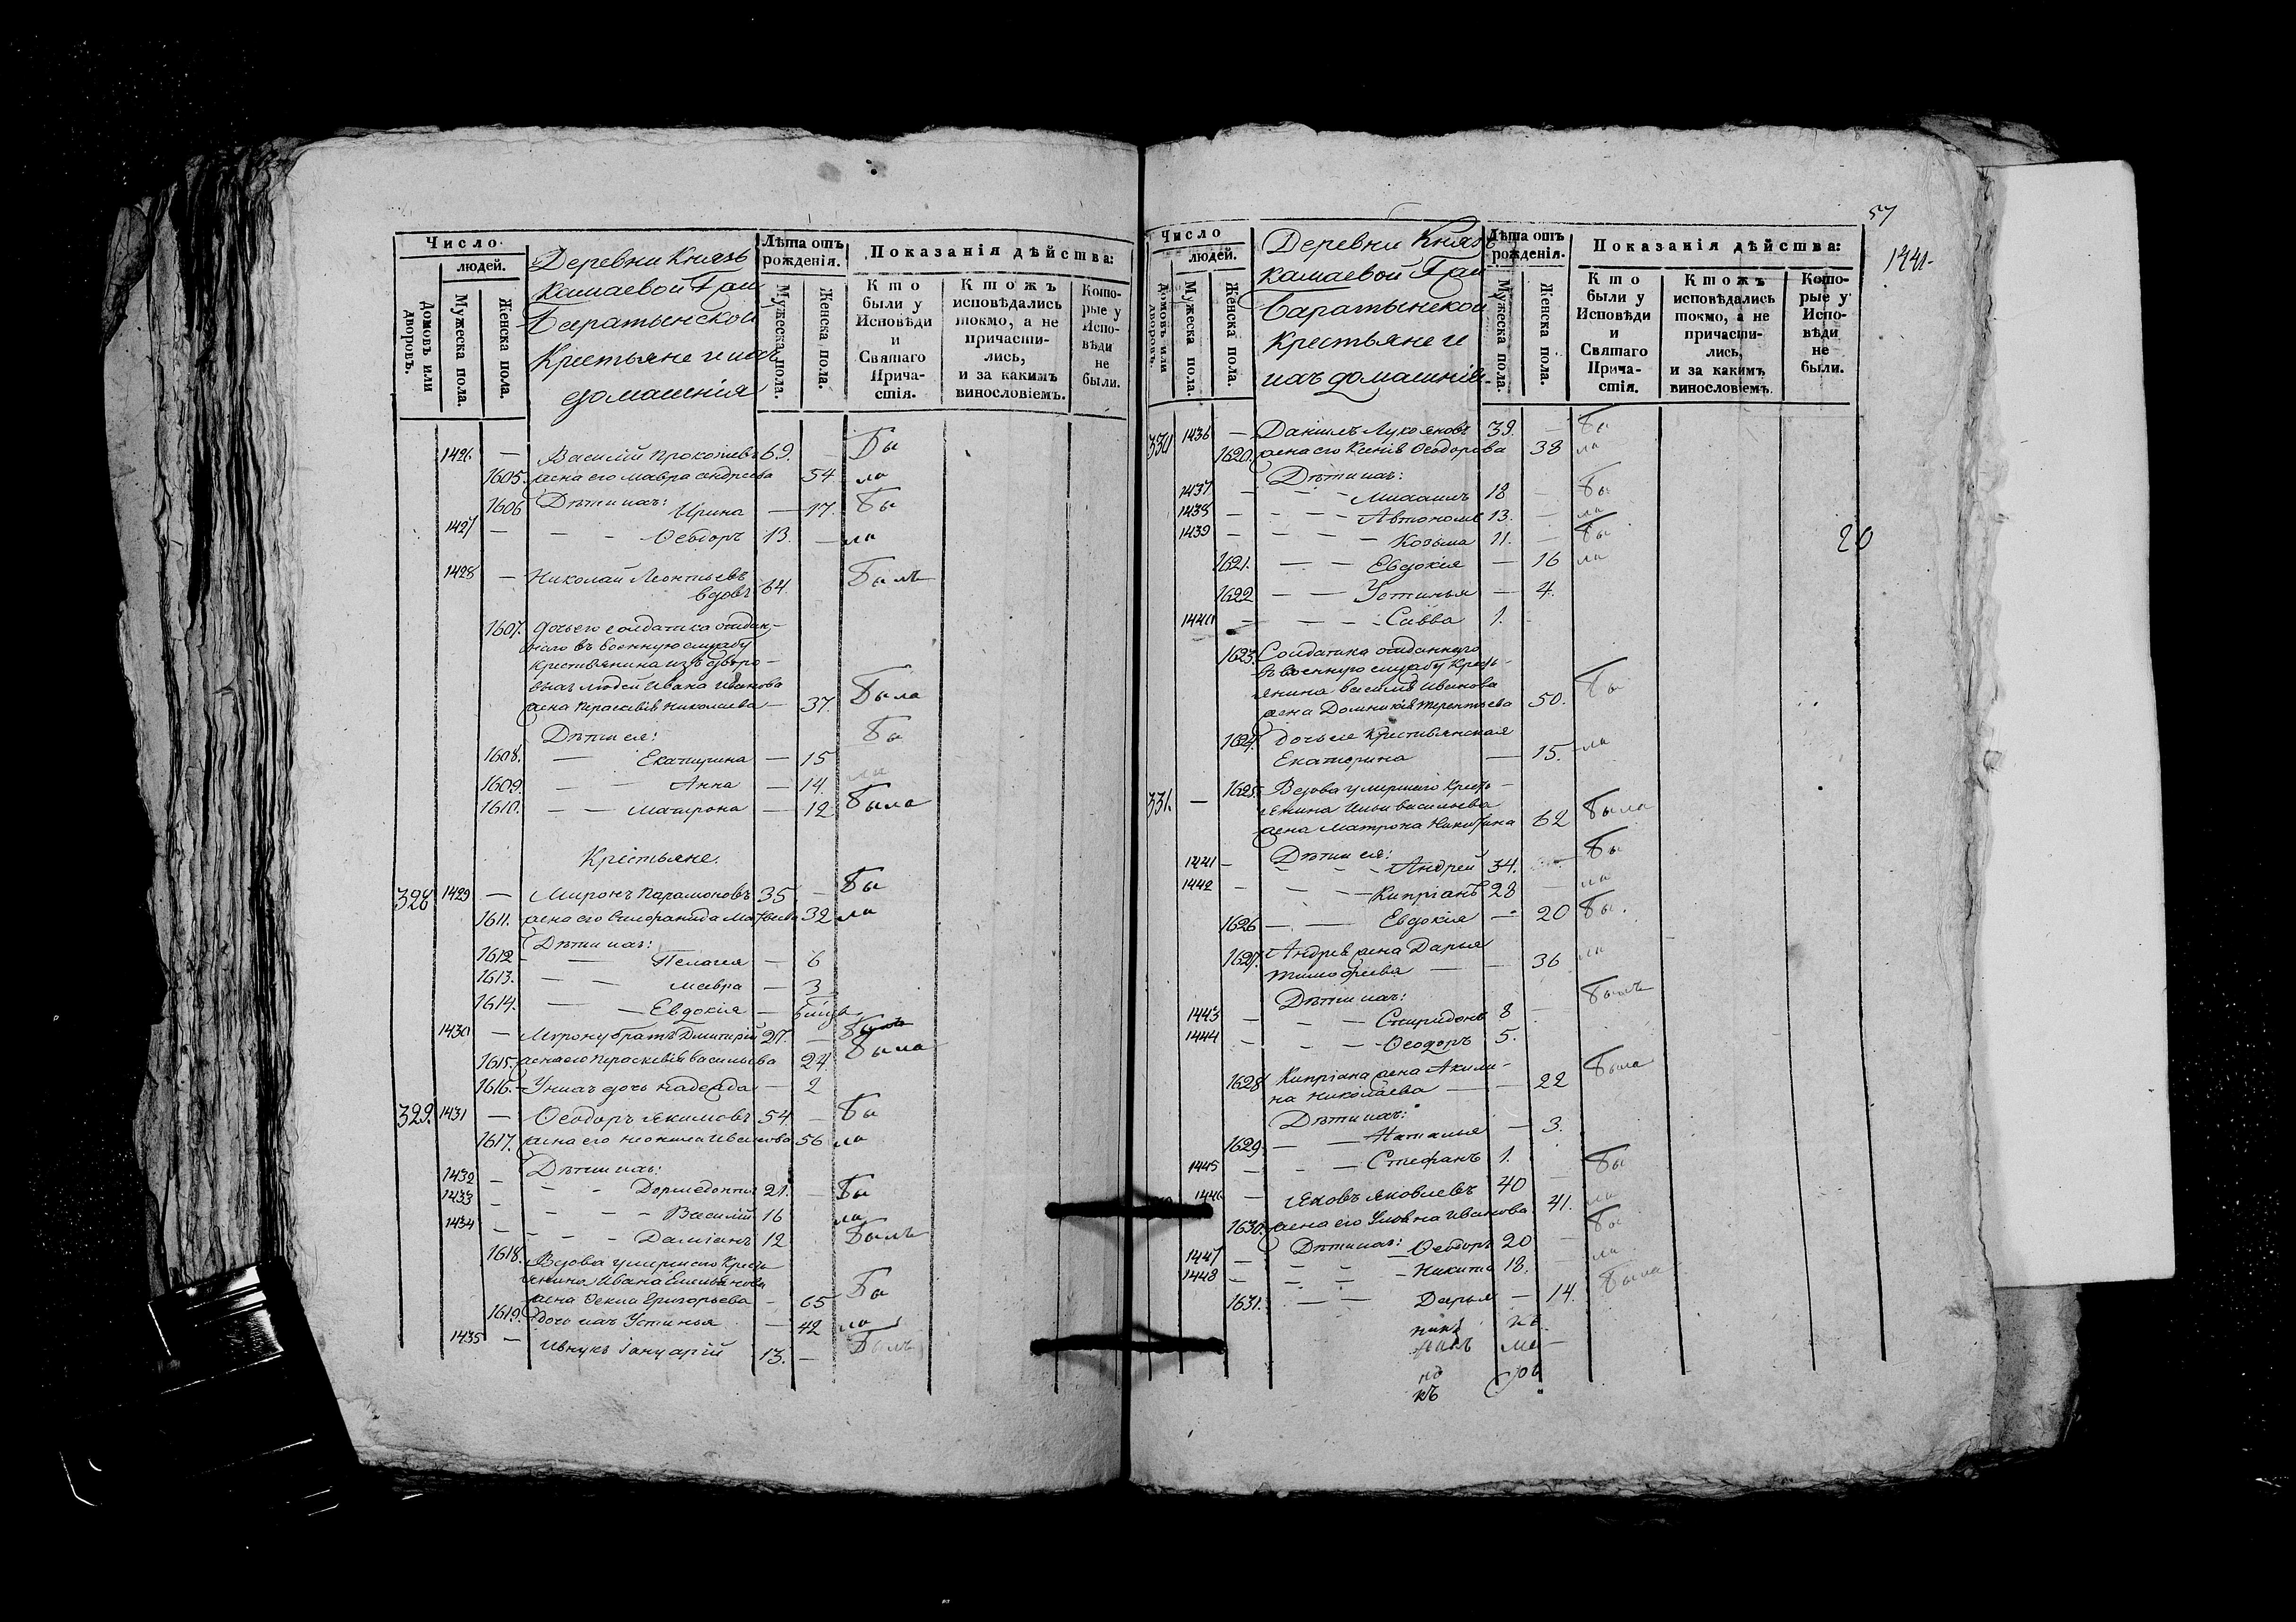 Число
людей.
Домовъ или дворовъ.
Мужеска пола.
Женска пола.
Деревни Князь
камаевой Гра
Баратынской
Крестьяне и ихъ
домашнія
Лѣта отъ рожденія.
Мужеска пола.
Женска пола.
Показанія дѣйства:
Кто были у Исповѣди и Святаго Прича-стія.
Ктожъ исповѣдались токмо, а не причасти-лись, и за какимъ винословіемъ.
Кото-рые у Испо-вѣди не были.
1426. — Василій Прокопіевъ 69. — Бы
1605. жена его Мавра Андреева 54 ла
1606 Дѣти ихъ: Ирина — 17. Бы
1427 — — — Ѳеодоръ 13. — ла
1428 — Николай Леонтьевъ
вдовъ 64. Былъ
1607. дочь его солдатка отдан-
наго въ военную службу
крестьянина изъ дворо-
выхъ людей Ивана Иванова
жена Параскевія Николаева — 37. Была
Дѣти ея: Бы
1608. — Екатерина — 15
1609. — — Анна — 14. ла
1610. — — Матрона — 12 Была
Крестьяне.
328 1429 — Миронъ Парамоновъ 35 — Бы
1611. жена его Матвева 32 ла
Дѣти ихъ:
1612 — — Пелагея — 6
1613. — — Мавра — 3
1614. — — Евдокія —
1430 — Мирону братъ Димитрій 27. — Былъ
1615. жена его Параскевія Васильева 24. Была
1616. — У нихъ дочь Надежда — 2
329. 1431 — Ѳеодоръ Якимовъ 54 — Бы
1617. жена его Неонила Иванова 56 ла
Дѣти ихъ:
1432 — — — Дормедонтъ 21. — Бы
1433 — — — — Василій 16 ла
1434 — — — Даміанъ 12 Былъ
1618. Вдова умершаго Кресть
янина Ивана Емельянова
жена Ѳекла Григорьева — 65 Бы
1619. дочь ихъ Устинья — 42 ла
1435 — Ивнукъ Іануарій 13. — Былъ
57
1441.
Число
людей.
Домовъ или дворовъ.
Мужеска пола.
Женска пола.
Деревни Князь
камаевой Гра
Баратынской
Крестьяне и
ихъ домашнія.
Лѣта отъ рожденія.
Мужеска пола.
Женска пола.
Показанія дѣйства:
Кто были у Исповѣди и Святаго Прича-стія.
Ктожъ исповѣдались токмо, а не причасти-лись, и за какимъ винословіемъ.
Кото-рые у Испо-вѣди не были.
330 1436 — Даніилъ Лукояновъ 39. — Бы
1620. жена его Ксенія Ѳеодорова 38 ла
Дѣти ихъ:
1437 — — — Михаилъ 18 — Бы
1438 — — — — Автономъ 13. — ла
1439 — — — — Козьма 11. — Бы
20
1621. — — Евдокія — 16 ла
1622 — — Устинья — 4.
1440 — — — Савва 1.
1623. Солдатка отданнаго
въ военную службу Кресть-
янина Василія Иванова
жена Домникія Терентьева 50. Бы
1624. дочь ея Крестьянская
Екатерина — 15. ла
331. — 1625. Вдова умершаго Кресть-
янина Ильи Васильева
жена Матрона Никитина 62 Была
Дѣти ея:
1441 — — — Андрей 34. — Бы
1442 — — — Кипріанъ 28 — ла
1626 — — Евдокія — 20 Бы.
1627. Андрея жена Дарья
Тимоѳеева — — 36 ла
Дѣти ихъ:
1443 — — — Спиридонъ 8 — Былъ
1444 — — — Ѳеодоръ 5.
1628 Кипріана жена Акили-
на Николаева — — 22 Была
Дѣти ихъ:
1629. — — Наталья — 3.
1445 — — — Стефанъ 1.
1446 — Яковъ Яковлевъ 40 — Бы
1630. жена его Улья на Иванова 41. ла
1447 — Дѣти ихъ: — Ѳеодоръ 20 — Бы
1448 — — — — Никита 18. — ла
1631. — — Дарья — 14. Была